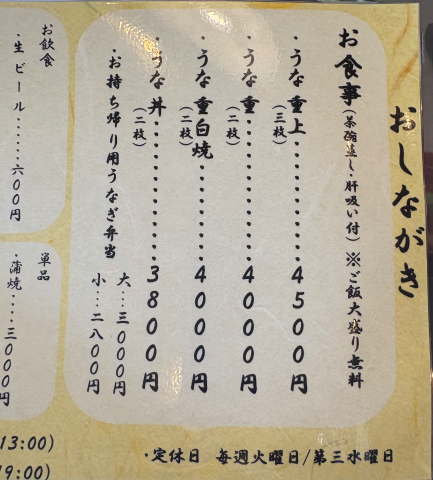 おしながき
お食事(茶碗蒸し・肝吸い付)※ご飯大盛り無料
・うな重上(三枚)・・・・・・・・・・4500円
・うな重(二枚)・・・・・・・・・・4000円
・うな重白焼(二枚)・・・・・・・・4000円
・うな丼(二枚)・・・・・・・・・・3800円
・お持ち帰り用うなぎ弁当
大…三〇〇〇円
小…二八〇〇円
お飲食
・生ビール……六〇〇円
単品
・蒲焼….三〇〇〇円
13:00)
19:00)
・定休日 毎週火曜日/第三水曜日